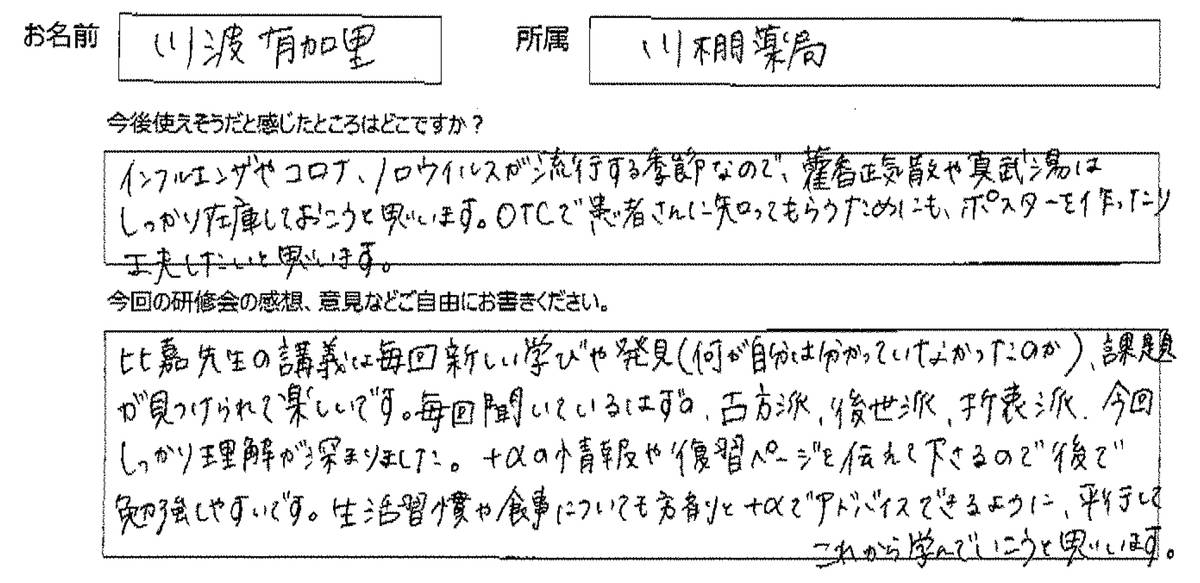 お名前 川波有加里 所属 川棚薬局
今後使えそうだと感じたところはどこですか?
インフルエンザやコロナ、ノロウイルスが流行する季節なので、藿香正気散や真武湯は
しっかり在庫しておこうと思います。OTCで患者さんに知ってもらうためにも、ポスターを作ったり
工夫したいと思います。
今回の研修会の感想、意見などご自由にお書きください。
比嘉先生の講義は毎回新しい学びや発見(何が自分は分かっていなかったのか)、課題
が見つけられて楽しいです。毎回聞いているはずの、古方派、後世派、折衷派、今回
しっかり理解が深まりました。+αの情報や復習ページを伝えて下さるので後で
勉強しやすいです。生活習慣や食事についても方剤と+αでアドバイスできるように、平行して
これから学んでいこうと思います。